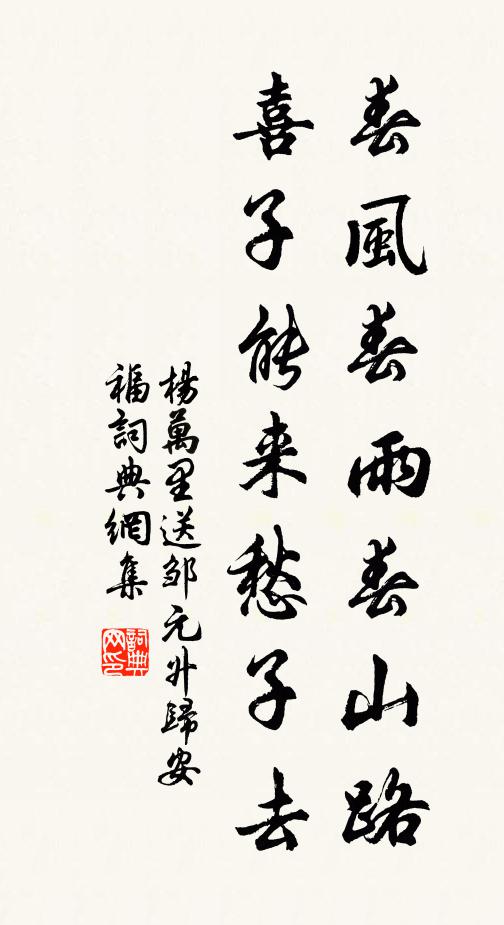 春風春雨春山路
喜子能来愁子去
楊萬里送邹元升歸安
福詞典網集
詞典
网印